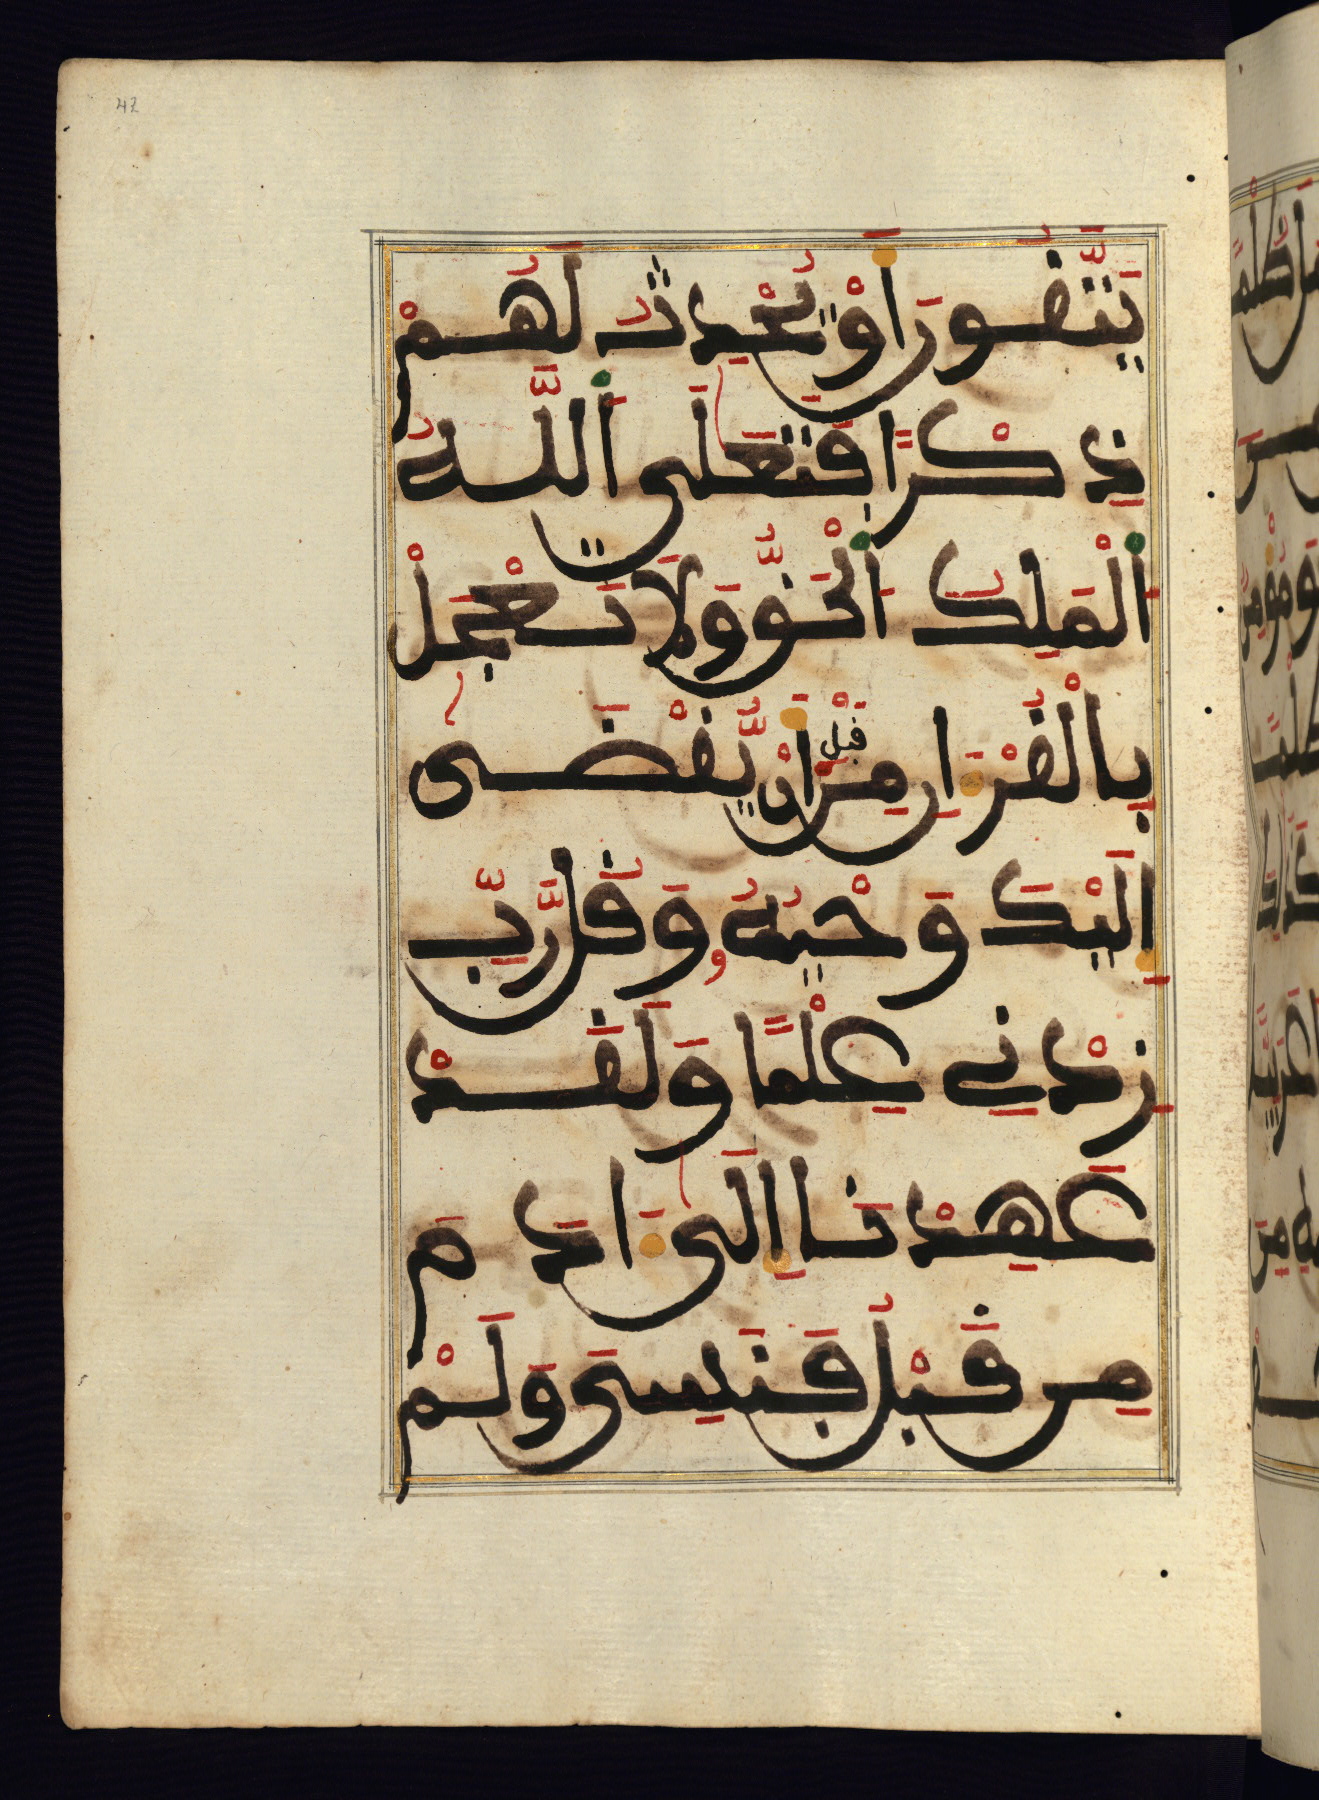 42
يَتَّقُونَ أَوْ يُحْدِثُ لَهُمْ
ذِكْرًا فَتَعَلَى اَللَّهُ
اُلْمَلِكُ اُلْحَقُّ وَلَا تَعْجَلْ
بِالْقُرْءَانِ مِن قَبْلِ أَنْ يُّقْضَى
إِلَيْكَ وَحْيُهُ وَقُل رَّبِّ
زِدْنِي عِلْمًا وَلَقَدْ
عَهِدْنَا إِلَى ءَادَمَ
مِن قَبْلُ فَنَسِىَ وَلَمْ